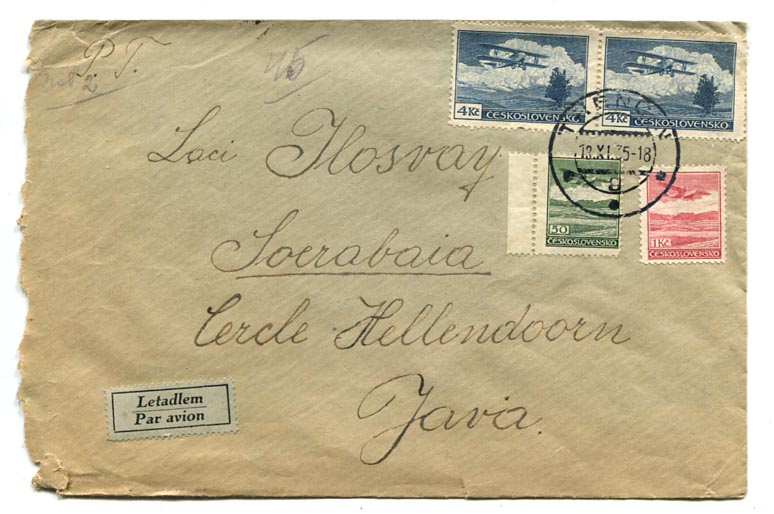 P.T.
45
4 Kč
ČESKOSLOVENSKO
4 Kč
ČESKOSLOVENSKO
TRENČÍN
18.XI.35-18
50
ČESKOSLOVENSKO
1 Kč
ČESKOSLOVENSKO
Laci Ilosvay
Soerabaia
Cercle Hellendoorn
Java.
Letadlem
Par avion